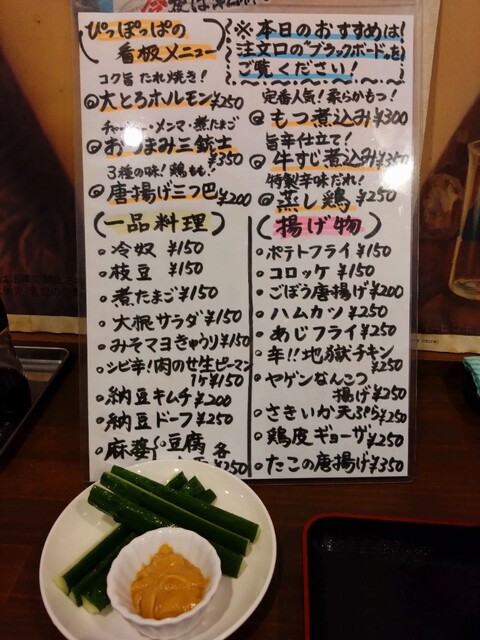 ぴっぽっぱの
看板メニュー
※本日のおすすめは!
注文口の"ブラックボード"を
ご覧ください!
コク旨 たれ焼き!
大とろホルモン¥250
チャーシュー・メンマ・煮たまご
おつまみ三銃士
¥350
3種の味!鶏もも!
唐揚げ三つ巴
¥200
定番人気!柔らかもつ!
もつ煮込み¥300
旨辛仕立て!
牛すじ煮込み¥350
特製辛味だれ!
蒸し鶏 ¥250
(一品料理)
・冷奴 ¥150
・枝豆 ¥150
・煮たまご¥150
・大根サラダ¥150
・みそマヨきゅうり¥150
・シビ辛!肉のせ生ピーマン
1ケ¥150
・納豆キムチ¥200
・納豆ドーフ¥250
・麻婆 豆腐 各
¥250
(揚げ物)
・ポテトフライ¥150
・コロッケ ¥150
・ごぼう唐揚げ¥200
・ハムカツ ¥250
・あじフライ¥250
・辛!!地獄チキン
¥250
・ヤゲンなんこつ
揚げ¥250
・さきいか天ぷら¥250
・鶏皮ギョーザ¥250
・たこの唐揚げ¥350